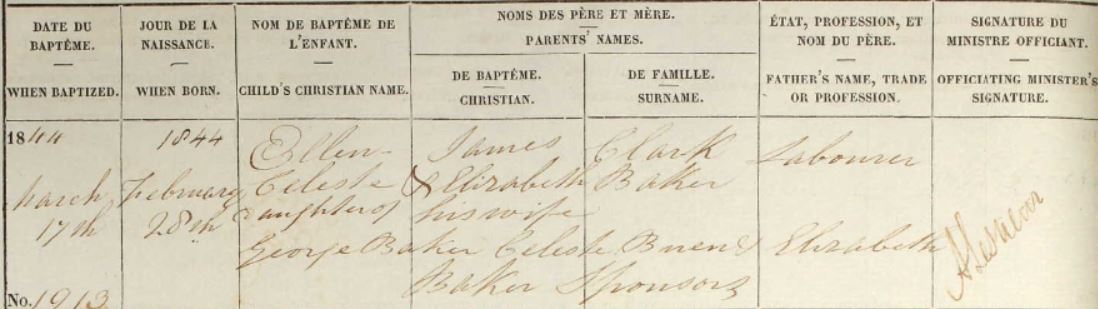 DATE DU BAPTÊME. — WHEN BAPTIZED.
JOUR DE LA NAISSANCE. — WHEN BORN.
NOM DE BAPTÊME DE L'ENFANT. — CHILD'S CHRISTIAN NAME.
NOMS DES PÈRE ET MÈRE. — PARENTS' NAMES.
DE BAPTÊME. — CHRISTIAN.
DE FAMILLE. — SURNAME.
ÉTAT, PROFESSION, ET NOM DU PÈRE. — FATHER'S NAME, TRADE OR PROFESSION.
SIGNATURE DU MINISTRE OFFICIANT. — OFFICIATING MINISTER'S SIGNATURE.
1844 1844 Ellen James Clark Labourer
March February Celeste & Elizabeth Baker
17th 28th Daughter of his wife
George Baker Celeste & Elizabeth
Baker Sponsors
No. 1913